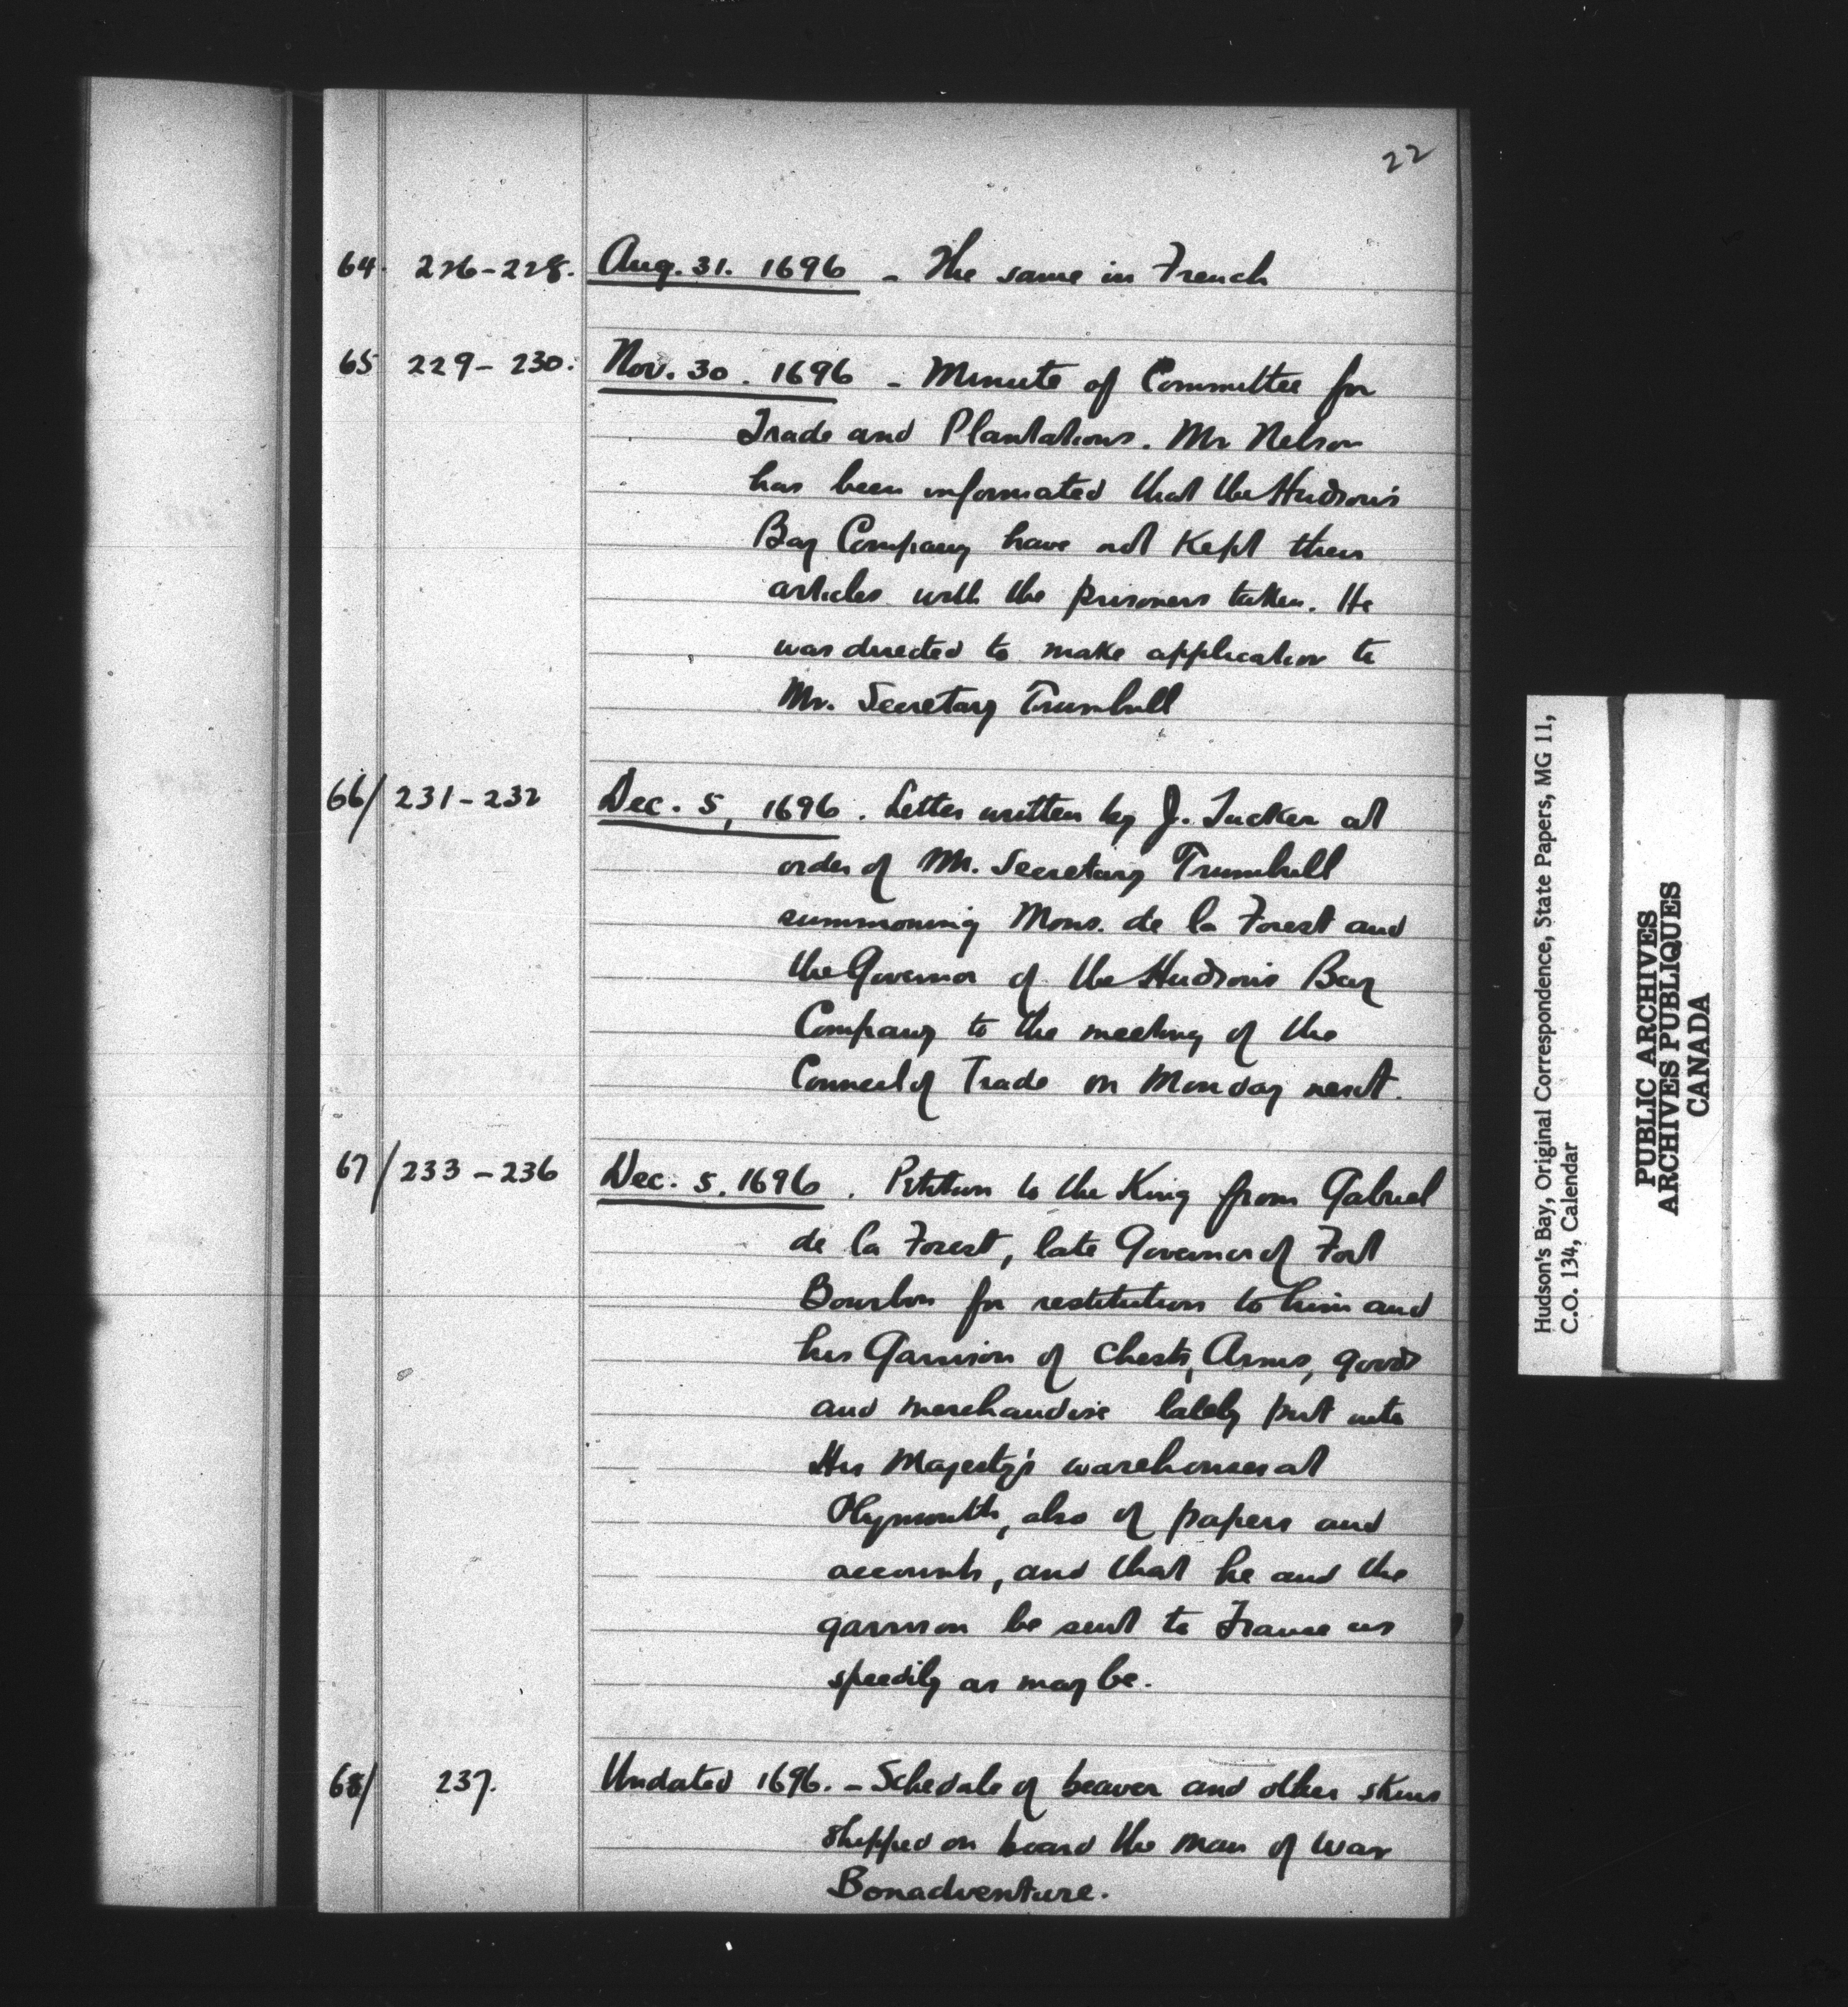 22
64. 226-228. Aug. 31. 1696 - The same in French
65 229-230. Nov. 30. 1696 - Minute of Committee for
Trade and Plantations. Mr Nelson
has been informated that the Hudson's
Bay Company have not kept their
articles with the prisoners taken. He
was directed to make application to
Mr. Secretary Trumbull
66/ 231-232 Dec. 5, 1696. Letter written by J. Tucker at
order of Mr. Secretary Trumbull
summoning Mons. de la Forest and
the Governor of the Hudson's Bay
Company to the meeting of the
Council of Trade on Monday next.
67/ 233-236 Dec. 5. 1696. Petition to the King from Gabriel
de la Forest, late Governor of Fort
Bourbon for restitution to him and
his Garrison of chests, Arms, goods
and merchandise lately put into
His Majesty's warehouses at
Plymouth, also of papers and
accounts, and that he and the
garrison be sent to France as
speedily as may be.
68/ 237. Undated 1696. - Schedule of beaver and other skins
shipped on board the man of war
Bonadventure.
Hudson's Bay, Original Correspondence, State Papers, MG 11,
C.O. 134, Calendar
PUBLIC ARCHIVES
ARCHIVES PUBLIQUES
CANADA